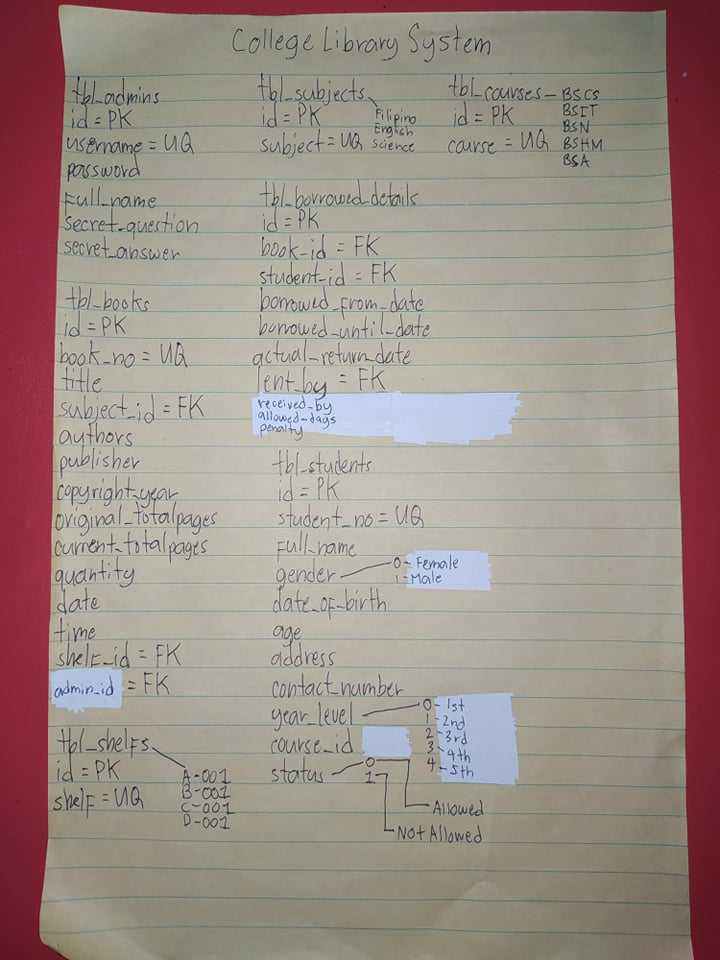 College Library System
tbl_admins
id = PK
username = UQ
password
Full_name
secret_question
secret_answer
tbl_books
id = PK
book_no = UQ
title
subject_id = FK
authors
publisher
copyright_year
original_totalpages
current_totalpages
quantity
date
time
shelf_id = FK
admin_id = FK
tbl_shelfs
id = PK
shelf = UQ
A-001
B-001
C-001
D-001
tbl_subjects
id = PK
subject = UQ
Filipino
English
Science
tbl_borrowed_details
id = PK
book_id = FK
student_id = FK
borrowed_from_date
borrowed_until_date
actual_return_date
lent_by = FK
received_by
allowed_days
penalty
tbl_students
id = PK
student_no = UQ
Full_name
gender
0 - Female
1 - Male
date_of_birth
age
address
contact_number
year_level
0 - 1st
1 - 2nd
2 - 3rd
3 - 4th
4 - 5th
course_id
status
0
1
Allowed
Not Allowed
tbl_courses - BSCS
id = PK
course = UQ
BSIT
BSN
BSHM
BSA